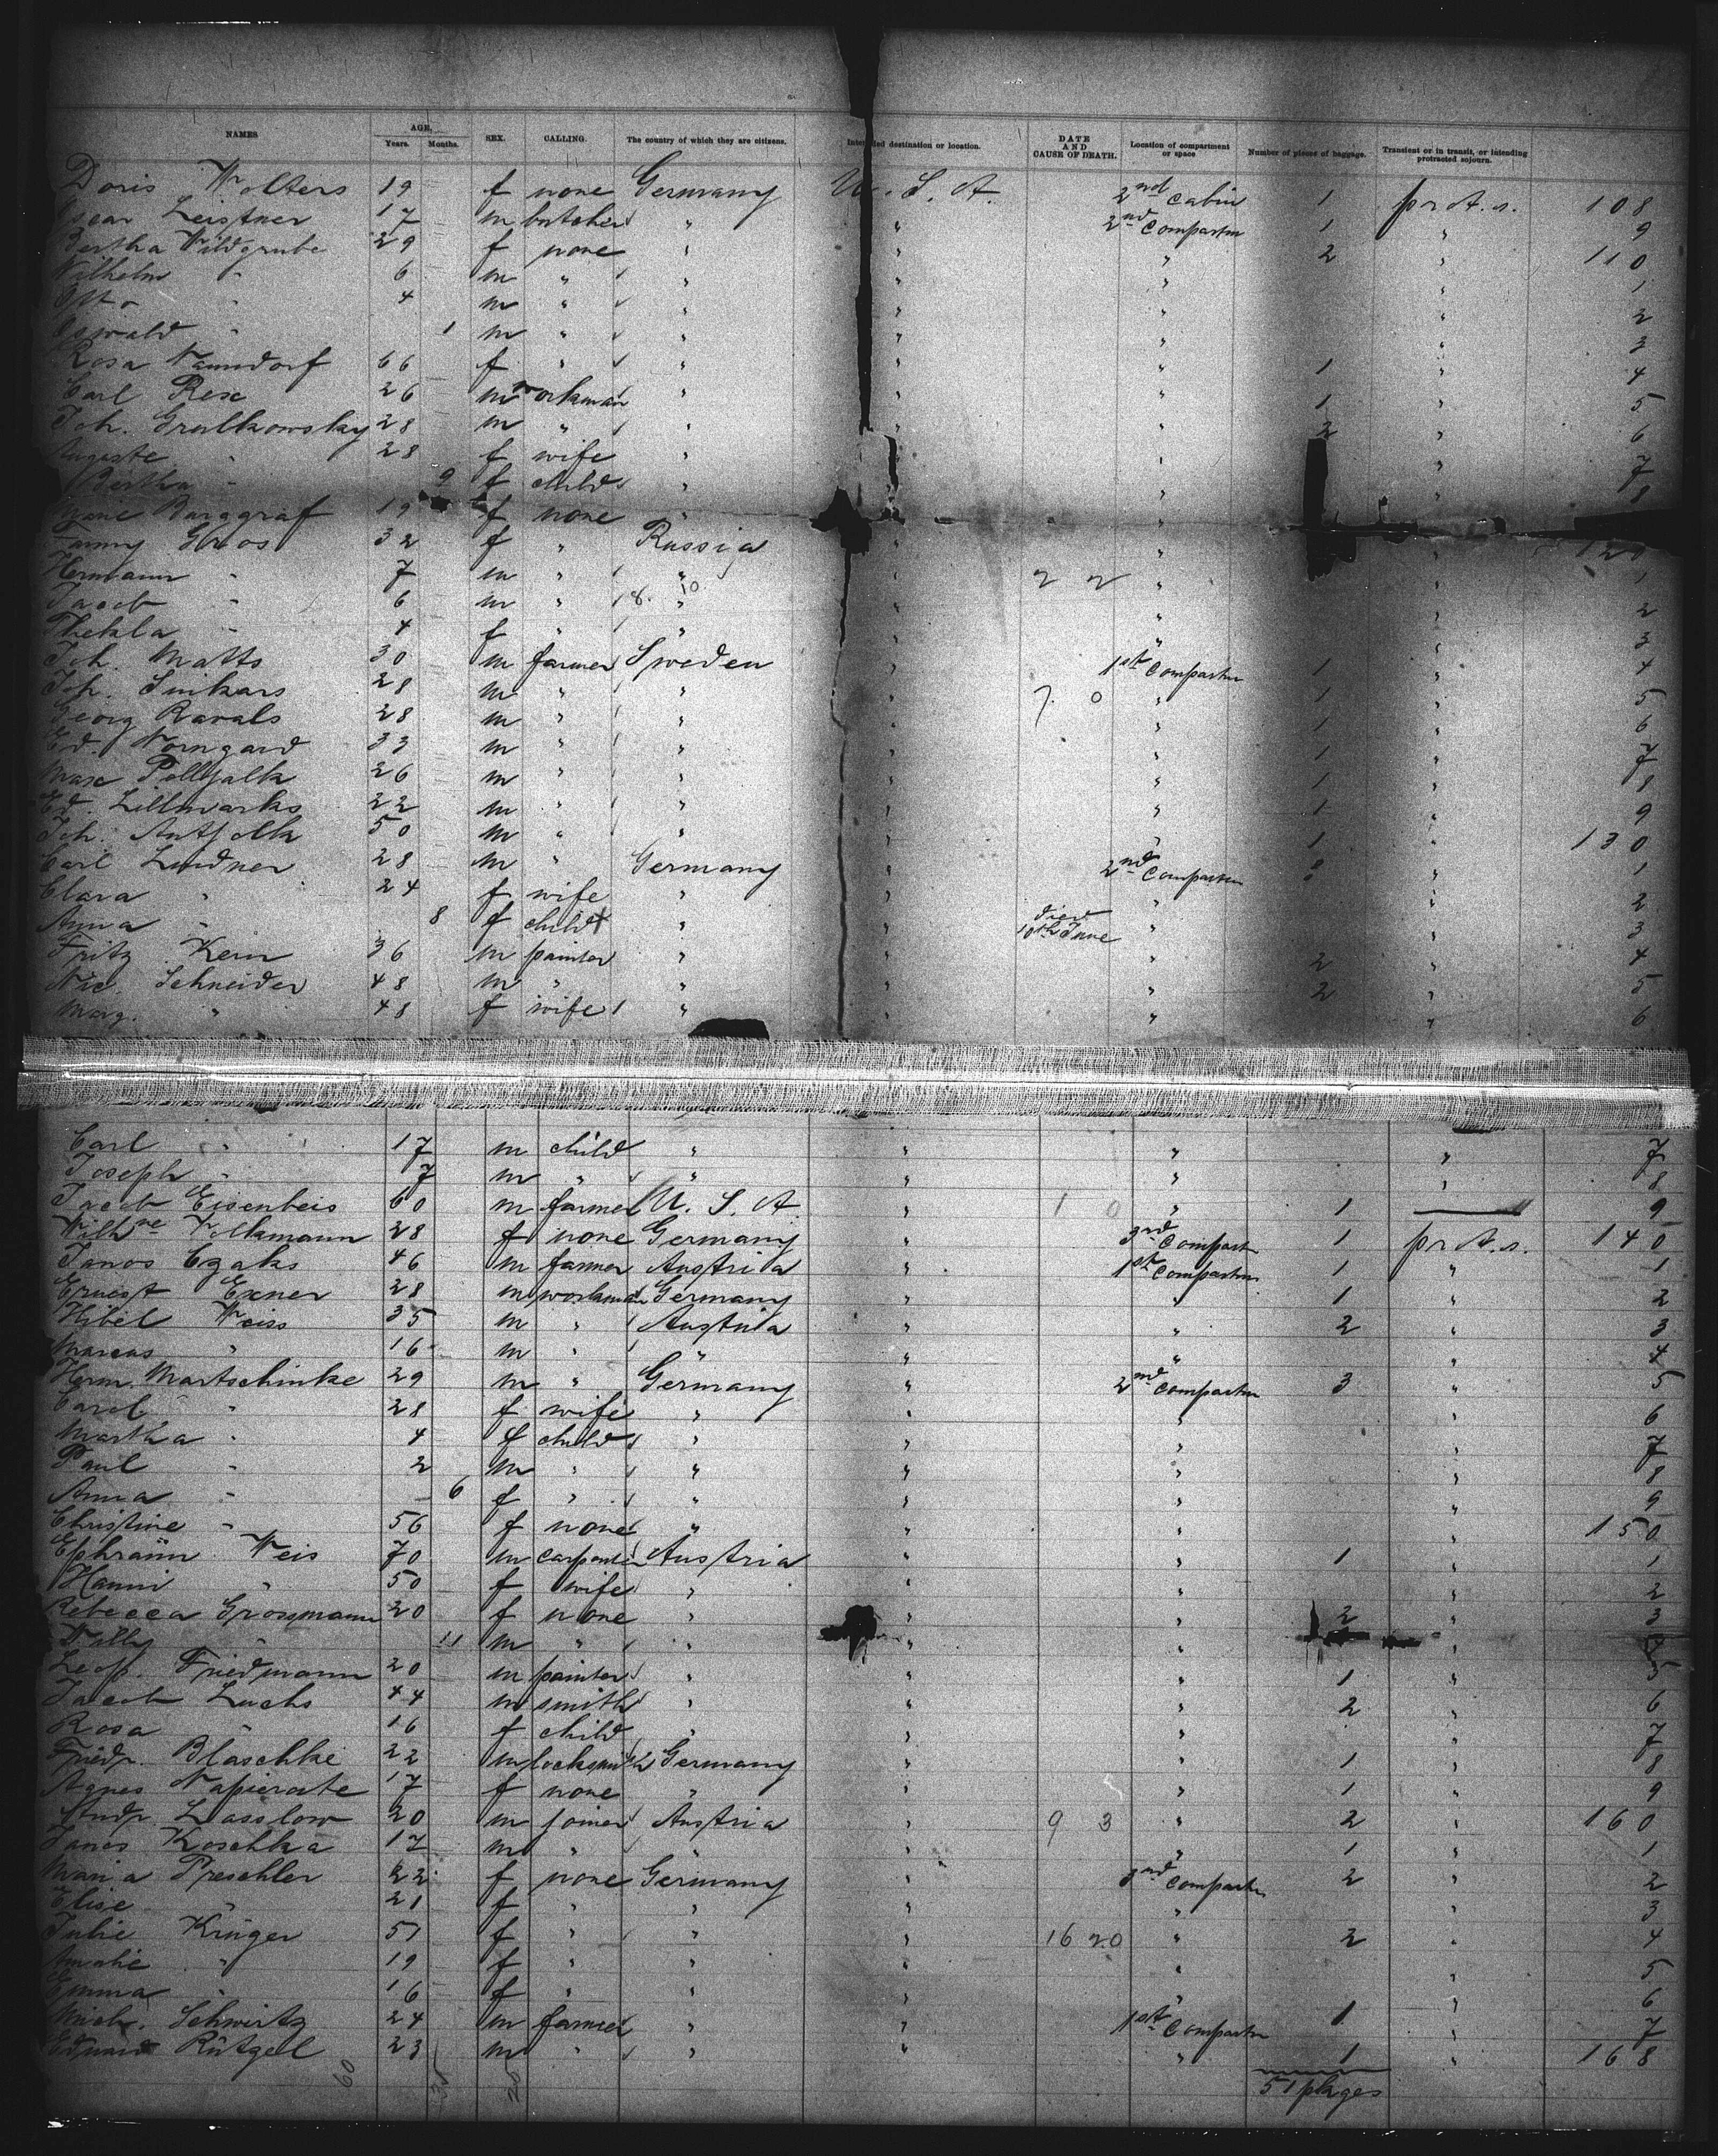 NAMES AGE. Years. Months. SEX. CALLING. The country of which they are citizens. Intended destination or location. DATE AND CAUSE OF DEATH. Location of compartment or space Number of pieces of baggage. Transient or in transit, or intending protracted sojourn.
Doris Wolters 19 f none Germany U. S. A. 2nd Cabin 1 pr. A. s. 108
Oscar Leistner 17 m butcher " " 2nd Compartm 1 " 9
Bertha Wildgrube 29 f none " " " 2 " 110
Wilhelm " 6 m " " " " " 1
Otto " 4 m " " " " " 2
Oswald " 1 m " " " " " 3
Rosa Namndorf 66 f " " " " 1 " 4
Carl Rex 26 m workman " " " 1 " 5
Joh. Grulkowsky 28 m " " " " 2 " 6
Auguste " 28 f wife " " " " 7
Bertha " 9 f child " " " " 8
Marie Burggraf 19 f none " " "
Fanny Gros 32 f " Russia " " " 120
Hermann " 7 m " " " 2 2 " " 1
Jacob " 6 m " 8. 10 " " " " 2
Thekla " 4 f " " " " " 3
Joh. Matts 30 m farmer Sweden " 1st Compartm 1 " 4
Joh. Smikars 28 m " " " 7. 0 " 1 " 5
Georg Ravals 28 m " " " " 1 " 6
Ed. Norngard 33 m " " " " 1 " 7
Max Pellfalk 26 m " " " " 1 " 8
Ed. Lillmarks 22 m " " " " 1 " 9
Joh. Antfolk 50 m " " " " 1 " 130
Carl Lindner 28 m " Germany " 2nd Compartm " 1
Clara " 24 f wife " " " " 2
Anna " 8 f child " " died 10th June " " 3
Fritz Kern 36 m painter " " " 2 " 4
Nic. Schneider 48 m " " " " 2 " 5
Marg. " 48 f wife " " " " 6
Carl " 17 m child " " " " 7
Joseph " 7 m " " " " " 8
Jacob Eisenbeis 60 m farmer U. S. A " 1 0 " 1 9
Wilhne Volkmann 28 f none Germany " 3rd Compart 1 pr. A. s. 140
Janos Czaks 46 m farmer Austria " 1st Compartm 1 " 1
Ernest Exner 28 m workman Germany " " 1 " 2
Hibel Weiss 35 m " Austria " " 2 " 3
Marcus " 16 m " " " " " 4
Herm. Martschinke 29 m " Germany " 2nd Compartm 3 " 5
Carol. " 28 f wife " " " " 6
Martha " 4 f child " " " " 7
Paul " 2 m " " " " " 8
Anna " 6 f " " " " " 9
Christine " 56 f none " " " " 150
Ephraim Weis 70 m carpenter Austria " " 1 " 1
Hanni " 50 f wife " " " " 2
Rebecca Grossmann 20 f none " " " 2 " 3
Willy " 11 m " " " " " 4
Leop. Friedmann 20 m painter " " " 1 " 5
Jacob Luchs 44 m smith " " " 2 " 6
Rosa " 16 f child " " " " 7
Friedr. Blaschke 22 m locksmith Germany " " 1 " 8
Agnes Napierate 17 f none " " " 1 " 9
Andr. Lasslow 20 m joiner Austria " 9 3 " 2 " 160
Janos Koschka 17 m " " " " 1 " 1
Maria Preschler 22 f none Germany " 3rd Compartm 2 " 2
Elise " 21 f " " " " " 3
Julie Krüger 51 f " " " 16 20 " 2 " 4
Amalie " 19 f " " " " " 5
Emma " 16 f " " " " " 6
Mich. Schwirtz 24 m farmer " " 1st Compartm 1 " 7
Eduard Rützel 23 m " " " " 1 " 168
60 35 20 51 pkges